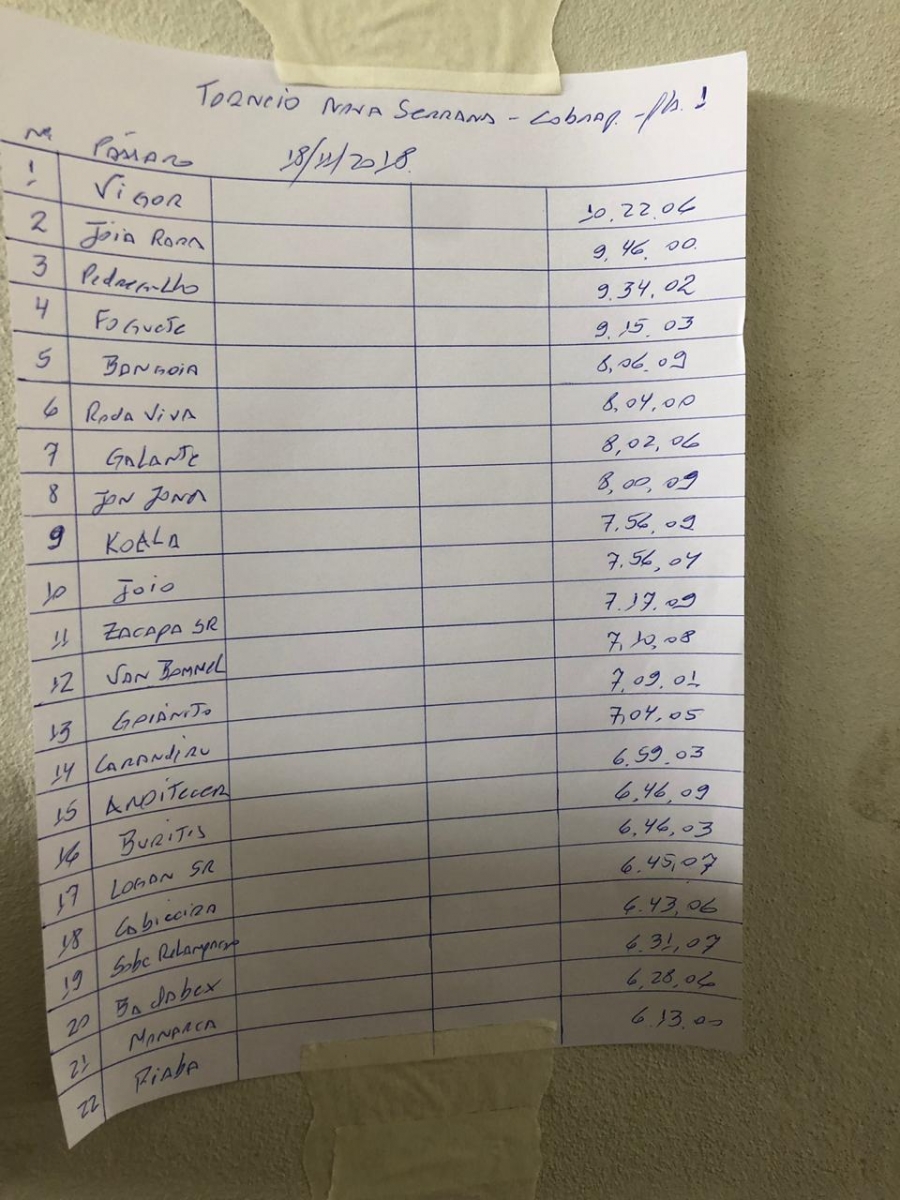 TORNEIO NOVA SERRANA - COBRAP. - fls. 1
Nº PÁSSARO 18/11/2018.
1 VIGOR 10.22.06
2 JOIA RARA 9.46.00
3 Pedregulho 9.34.02
4 FOGUETE 9.15.03
5 8,06.09
6 Roda VIVA 8,04,00
7 GALANTE 8,02,06
8 JON JONA 8,00,09
9 KOALA 7.56.09
10 JOIO 7.56,04
11 ZACAPA SR 7.17.09
12 VAN BOMMEL 7,10,08
13 GOIANITO 7,09.01
14 CARANDIRU 7,04,05
15 6.59.03
16 BURITIS 6,46,09
17 LOGAN SR 6.46,03
18 6.45,07
19 Sobe Relampago 6.43,06
20 Badabex 6.31,07
21 MONARCA 6,28,06
22 6.13.00